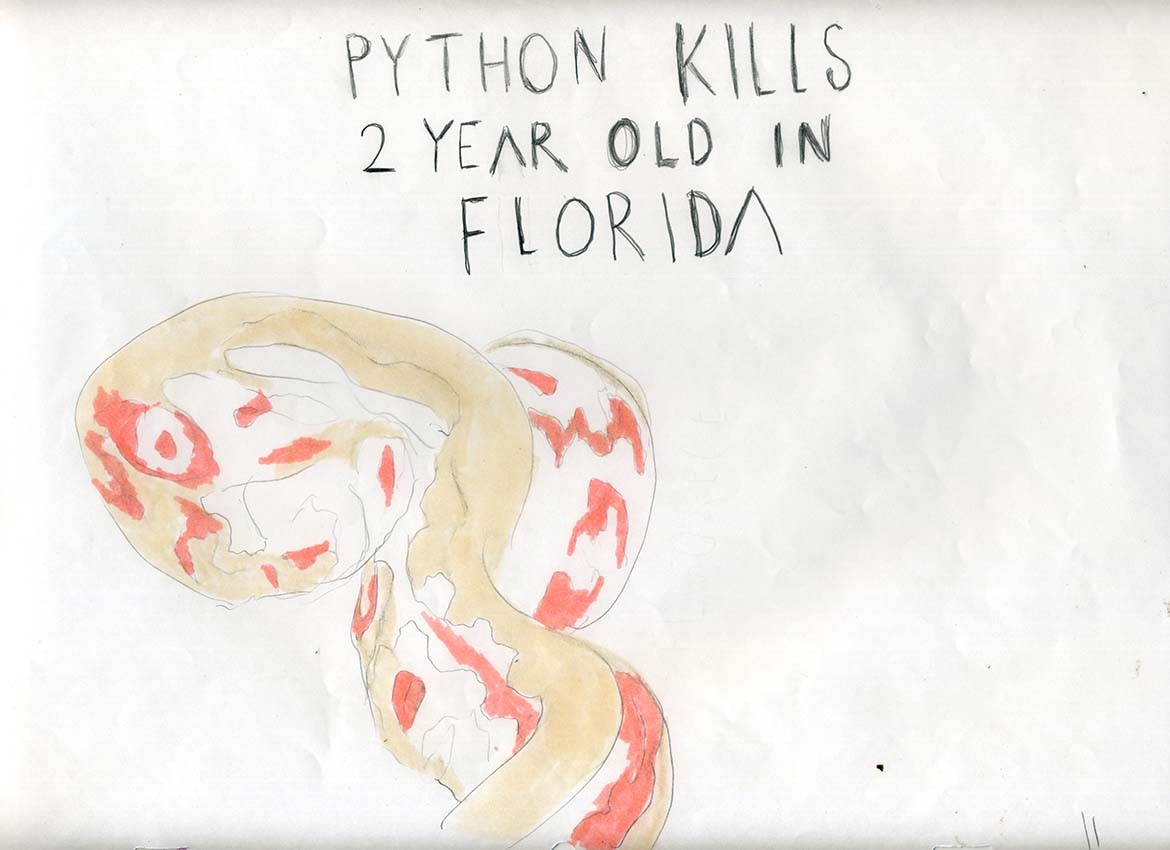 PYTHON KILLS
2 YEAR OLD IN
FLORIDA